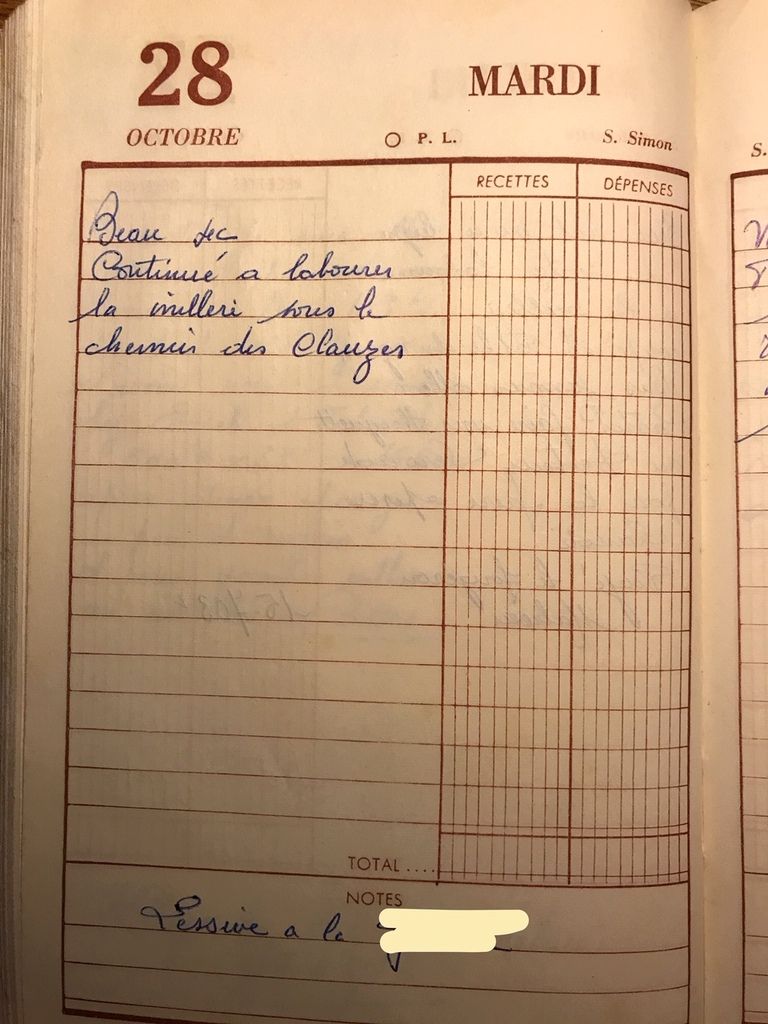 28
MARDI
OCTOBRE
P. L.
S. Simon
S.
RECETTES
DÉPENSES
Beau sec
Continué a labourer
la milleri sous le
chemin des Clauzes
TOTAL ....
NOTES
Lessive a la